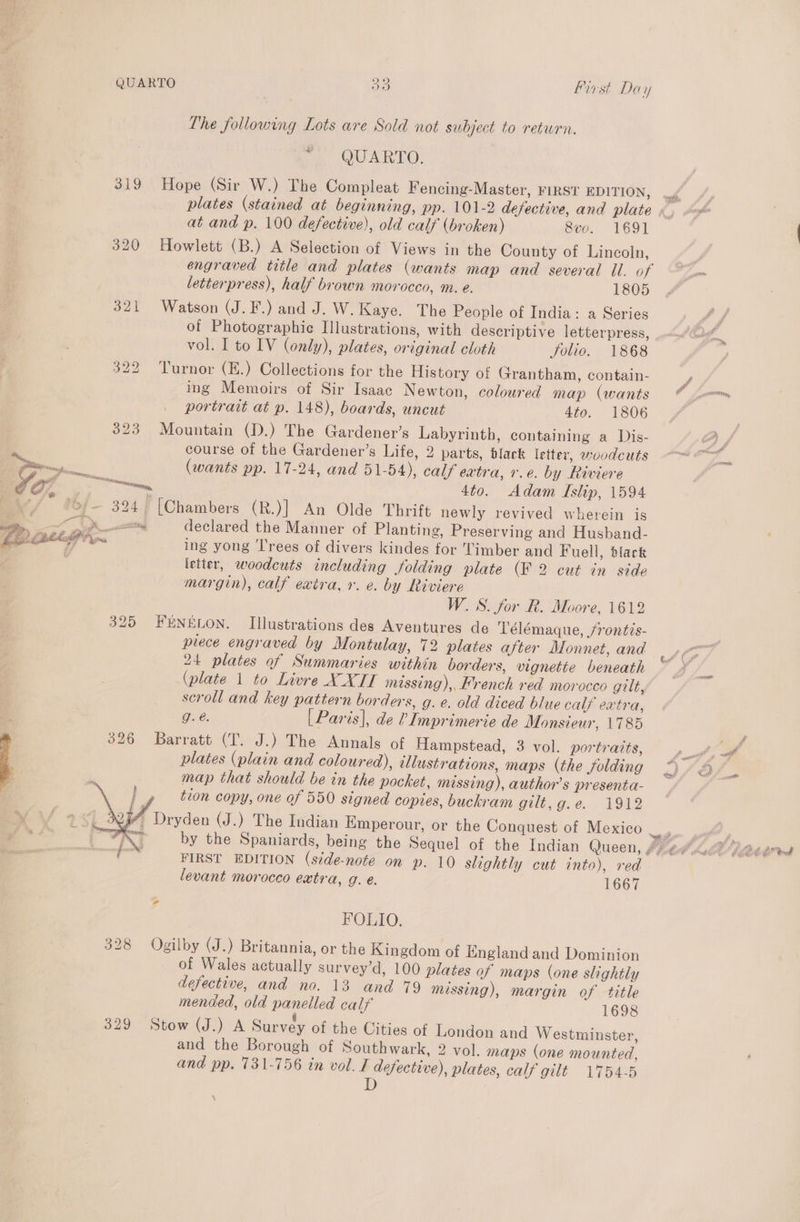 QUARTO 33 First Day
The following Lots are Sold not subject to return.
QUARTO.
319 Hope (Sir W.) The Compleat Fencing-Master, FIRST EDITION,
plates (stained at beginning, pp. 101-2 defective, and plate
at and p. 100 defective), old calf (broken) 8vo. 1691
320 Howlett (B.) A Selection of Views in the County of Lincoln,
engraved title and plates (wants map and several ll. of
letterpress), half brown morocco, m. e. 1805
321 Watson (J. F.) and J. W. Kaye. The People of India: a Series
of Photographic Illustrations, with descriptive letterpress,
vol. I to IV (only), plates, original cloth folio. 1868
322 Turnor (E.) Collections for the History of Grantham, contain-
ing Memoirs of Sir Isaac Newton, coloured map (wants
portrait at p. 148), boards, uncut 4to. 1806
323 Mountain (D.) The Gardener's Labyrinth, containing a Dis-
course of the Gardener's Life, 2 parts, black letter, woodcuts
(wants pp. 17-24, and 51-54), calf extra, r. e. by Riviere
4to. Adam Islip, 1594
324 [Chambers (R.)] An Olde Thrift newly revived wherein is
declared the Manner of Planting, Preserving and Husband-
ing yong Trees of divers kindes for Timber and Fuell, black
letter, woodcuts including folding plate (F 2 cut in side
margin), calf extra, r. e. by Riviere
W. S. for R. Moore, 1612
325 FÉNÉLON. Illustrations des Aventures de Télémaque, frontis-
piece engraved by Montulay, 72 plates after Monnet, and
24 plates of Summaries within borders, vignette beneath
(plate 1 to Livre XXII missing), French red morocco gilt,
scroll and key pattern borders, g. e. old diced blue calf extra,
g. e. [Paris], de l'Imprimerie de Monsieur, 1785
326 Barratt (T. J.) The Annals of Hampstead, 3 vol. portraits,
plates (plain and coloured), illustrations, maps (the folding
map that should be in the pocket, missing), author's presenta-
tion copy, one of 550 signed copies, buckram gilt, g. e. 1912
Dryden (J.) The Indian Emperour, or the Conquest of Mexico
by the Spaniards, being the Sequel of the Indian Queen,
FIRST EDITION (side-note on p. 10 slightly cut into), red
levant morocco extra, g. e. 1667
FOLIO.
328 Ogilby (J.) Britannia, or the Kingdom of England and Dominion
of Wales actually survey'd, 100 plates of maps (one slightly
defective, and no. 13 and 79 missing), margin of title
mended, old panelled calf 1698
329 Stow (J.) A Survey of the Cities of London and Westminster,
and the Borough of Southwark, 2 vol. maps (one mounted,
and pp. 731-756 in vol. I defective), plates, calf gilt 1754-5
D